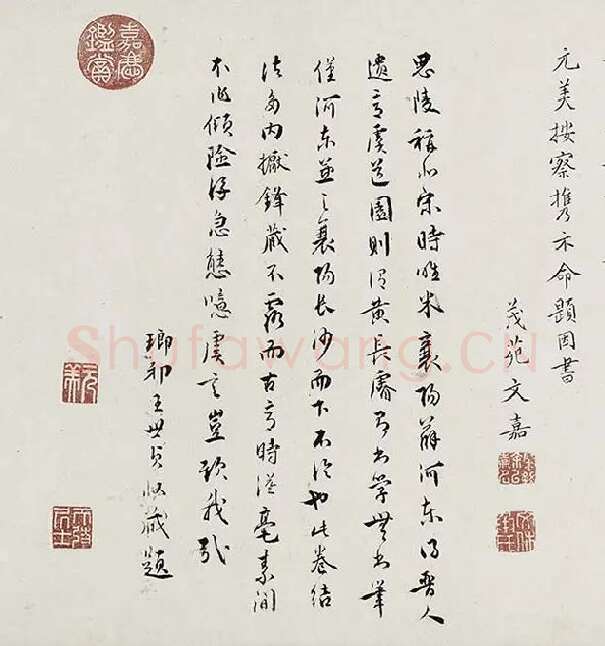 元美按察攜示命題因書
茂苑文嘉
思陵稱北宋時唯米襄陽薛河東得晉人
遺意虞道園則謂黃長睿有書學無書筆
僅河東兼之襄陽長沙而下不論也此卷結
法多內擫鋒藏不露而古意時溢毫素間
不作傾險浮急態噫虞言豈欺我哉
瑯邪王世貞收藏題
嘉慶鑑賞
Shufawang.cn